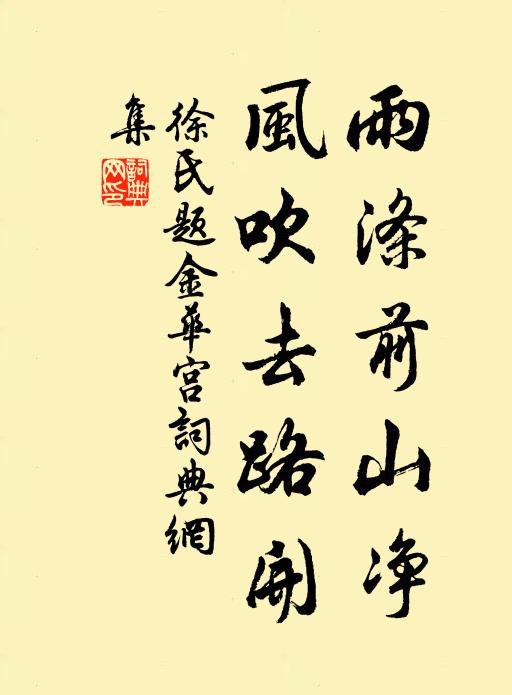 雨滌前山净
風吹去路開
徐氏題金華宫詞典網
集
詞典
网印